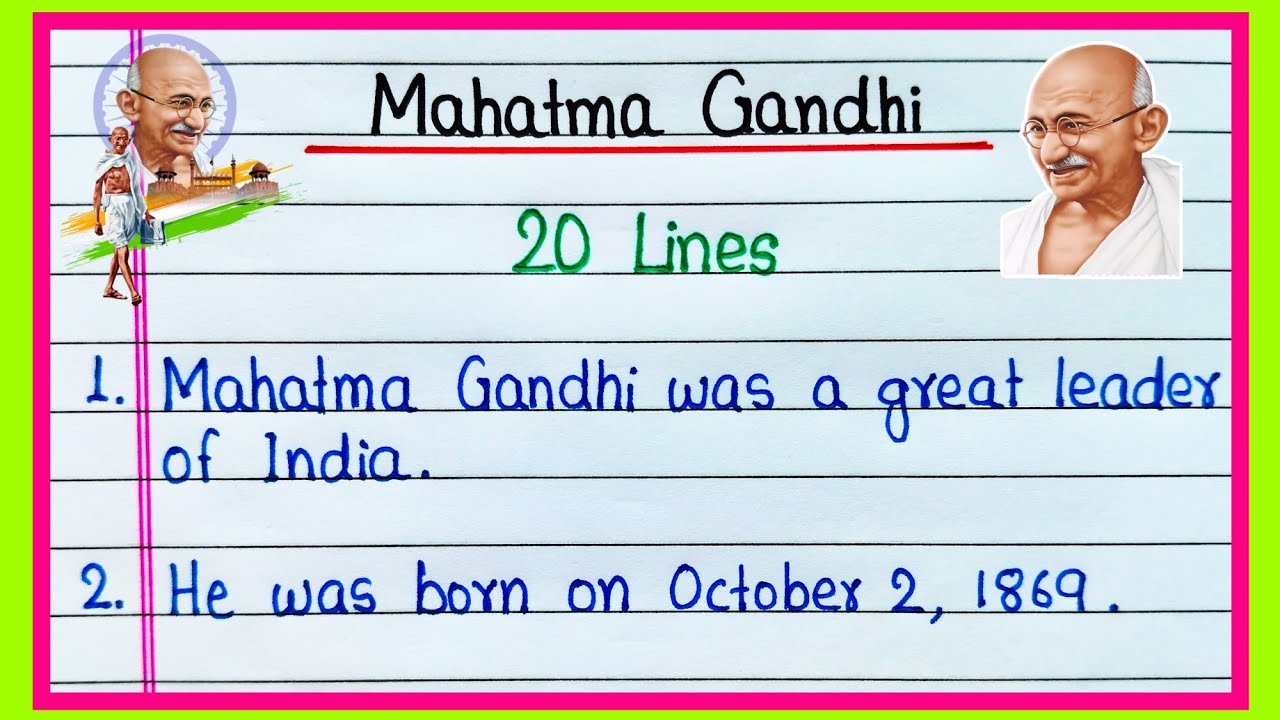 Mahatma Gandhi
20 Lines
1. Mahatma Gandhi was a great leader
of India.
2. He was born on October 2, 1869.